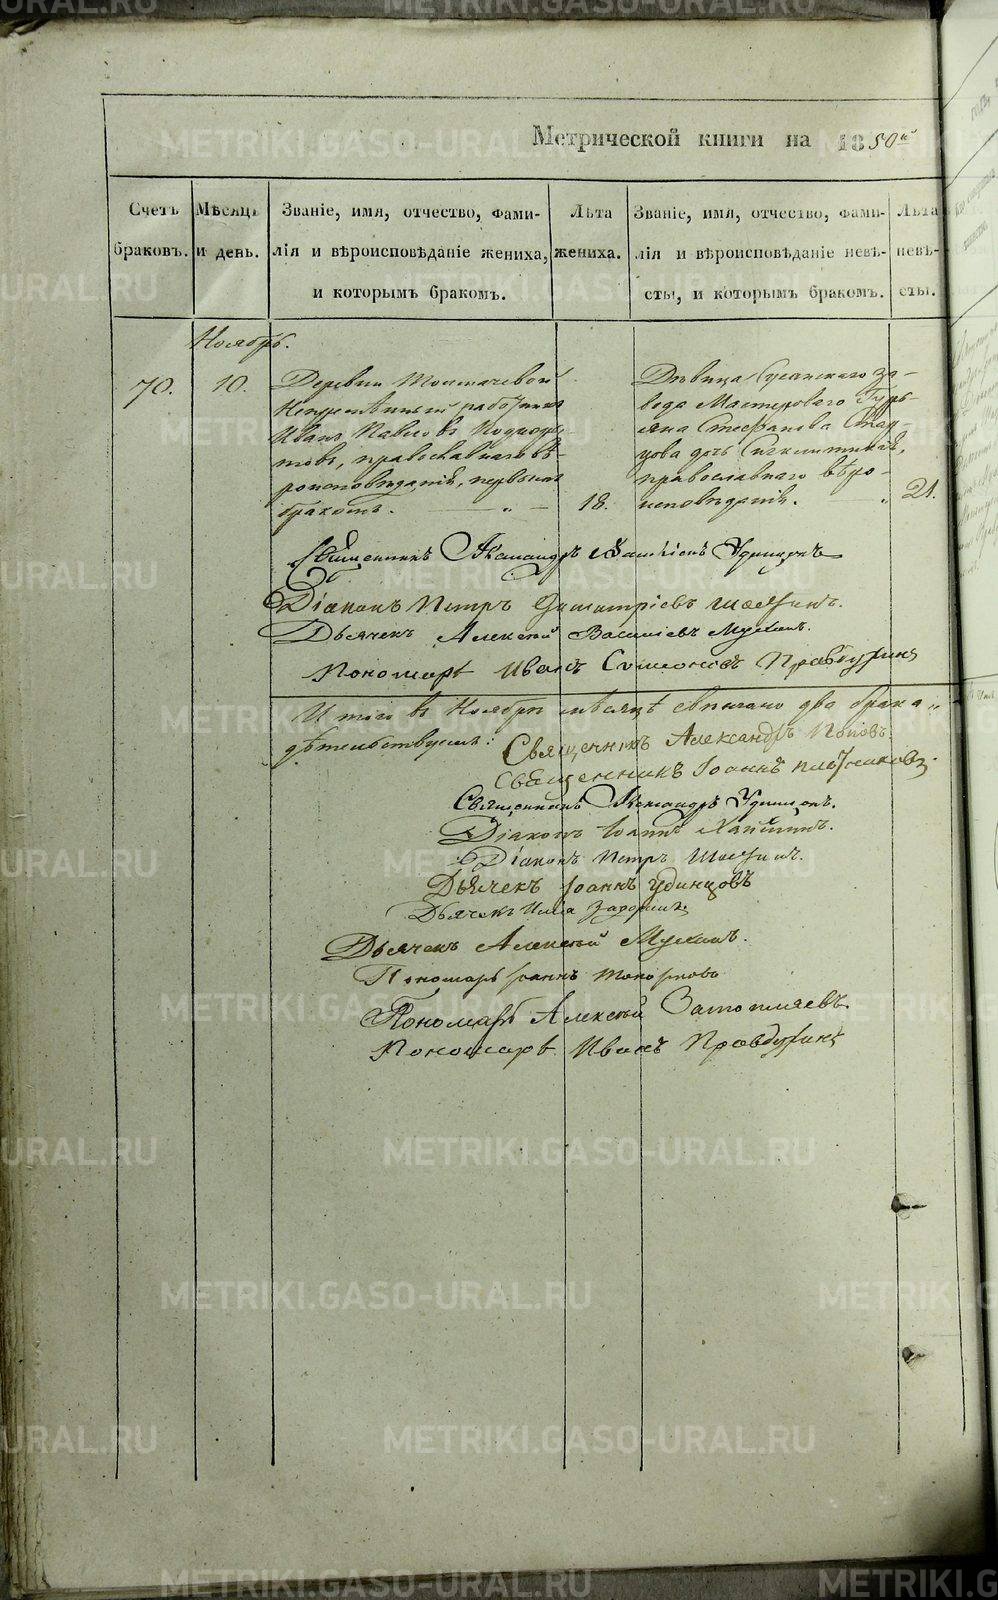 Метрической книги на 1850й
Счетъ браковъ.
Мѣсяцъ и день.
Званіе, имя, отчество, фами-
лія и вѣроисповѣданіе жениха,
и которымъ бракомъ.
Лѣта
жениха.
Званіе, имя, отчество, фами-
лія и вѣроисповѣданіе невѣ-
сты, и которымъ бракомъ.
Лѣта
невѣ-
сты.
Ноябрь.
70.
10.
Деревни Толмачевой
Непремѣнный работникъ
Иванъ Павловъ
православнаго вѣ-
роисповѣданія, первымъ
бракомъ.
18.
Дѣвица Сусанскаго за-
вода Мастероваго Гурь-
яна Стефанова Стар-
цова дочь
православнаго вѣро-
исповѣданія.
21.
Священникъ Александръ Удинцовъ
Діаконъ Петръ Димитріевъ
Дьячекъ Алексѣй Васильевъ
Пономарь Иванъ Симеоновъ Правдухинъ
Итого въ Ноябрѣ мѣсяцѣ свѣнчано два брака
Священникъ Александръ Поповъ
Священникъ Іоаннъ Плотниковъ
Священникъ Александръ Удинцовъ.
Діаконъ Іоаннъ
Діаконъ Петръ
Дьячекъ Іоаннъ Удинцовъ
Дьячекъ Илія
Дьячекъ Алексѣй
Пономарь Іоаннъ Топорковъ
Пономарь Алексѣй Затопляевъ
Пономарь Иванъ Правдухинъ
METRIKI.GASO-URAL.RU